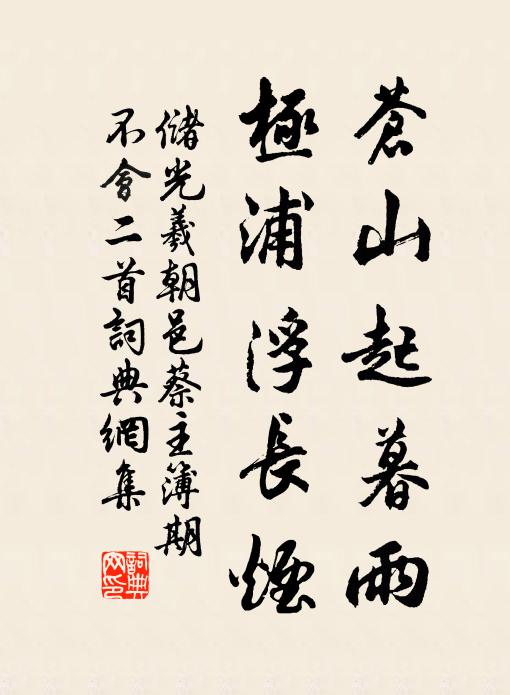 蒼山起暮雨
極浦浮長煙
儲光羲朝邑蔡主簿期
不會二首詞典網集
詞典
网印